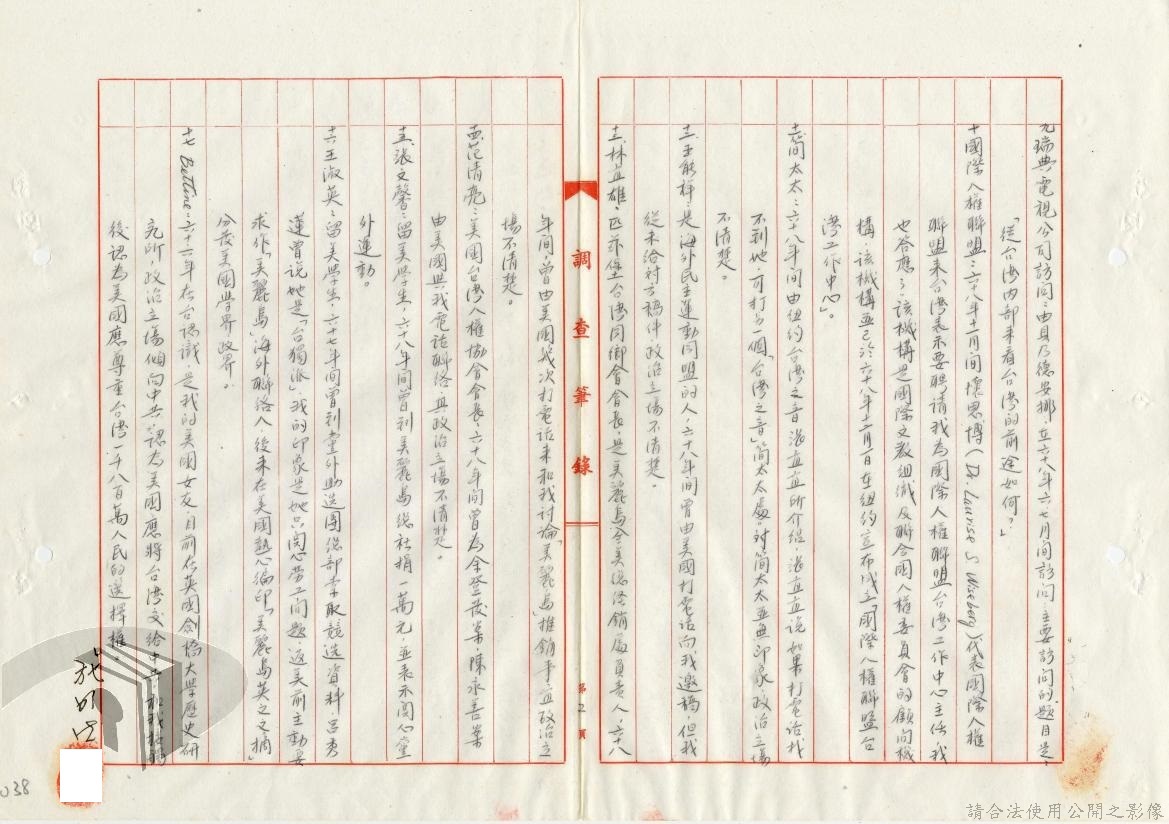 九瑞典電視公司訪問：由貝乃德安挪，在六十八年六七月間訪問，主要訪問的題目是：
「從台湾内部来看台湾的前途如何？」
十國際人權聯盟：六十八年十一月間懷思博（Dr. Laurise S Wiseberg）代表國際人權
聯盟来台湾表示要聘請我為國際人權聯盟台湾工作中心主任我
也答應了，該機構是國際文教組織及聯合國人權委員會的顧問機
構，該機構並已於六十八年十二月一日在紐約宣布成立「國際人權聯盟台
湾工作中心」。
十一簡太太：六十八年間由紐約台湾之音張
所介紹，張
說如果打電話找
不到她，可打另一個「台湾之音」簡太太處，對簡太太並無印象，政治立場
不清楚。
十二王能祥：是海外民主運動同盟的人，六十八年間曾由美國打電話向我邀稿，但我
從未給付予稿件，政治立場不清楚。
十三林益雄：匹茨堡台湾同鄉會會長，是美麗島全美總經銷處負責人，六十八
調查筆錄
第2頁
年間，曾由美國幾次打電話来和我討論「美麗島」推銷事宜政治立
場不清楚。
十四范清亮：美國台湾人權協會會長，六十八年間曾為余登發案，陳永善案
由美國與我電話聯絡其政治立場不清楚。
十五張文馨：留美學生，六十八年間曾到美麗島總社捐一萬元，並表示関心黨
外運動。
十六王淑英：留美學生，六十七年間曾到黨外助選團總部索取競選資料，呂秀
蓮曾說她是「台獨派」，我的印象是她只関心勞工問題，返美前主動要
求作「美麗島」海外聯絡人，後来在美國熱心編印「美麗島英文文摘」
分發美國學界政界。
十七Bettine：六十六年在台認識，是我的美國女友，目前在英國劍橋大學歷史研
究所，政治立場傾向中共，認為美國應將台湾交給中共，和我
後認為美國應尊重台湾一千八百萬人民的選擇權。
施明
038
請合法使用公開之影像